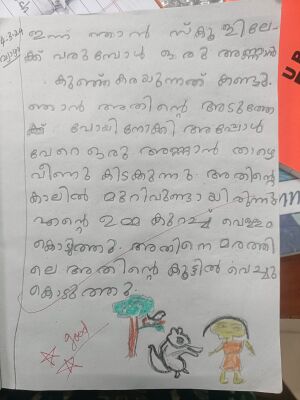 ഇന്ന് ഞാൻ സ്കൂളിലേ-
ക്ക് വരുമ്പോൾ ഒരു അണ്ണാൻ
കുഞ്ഞ് കരയുന്നത് കണ്ടു.
ഞാൻ അതിന്റെ അടുത്തേ
ക്ക് പോയി നോക്കി അപ്പോൾ
വേറെ ഒരു അണ്ണാൻ താഴെ
വീണു കിടക്കുന്നു. അതിന്റെ
കാലിൽ മുറിവുണ്ടായിരുന്നു
എന്റെ ഉമ്മ കുറച്ച് വെള്ളം
കൊടുത്തു. അതിനെ മരത്തി
ലെ അതിന്റെ കൂട്ടിൽ വെച്ചു
കൊടുത്തു.
good